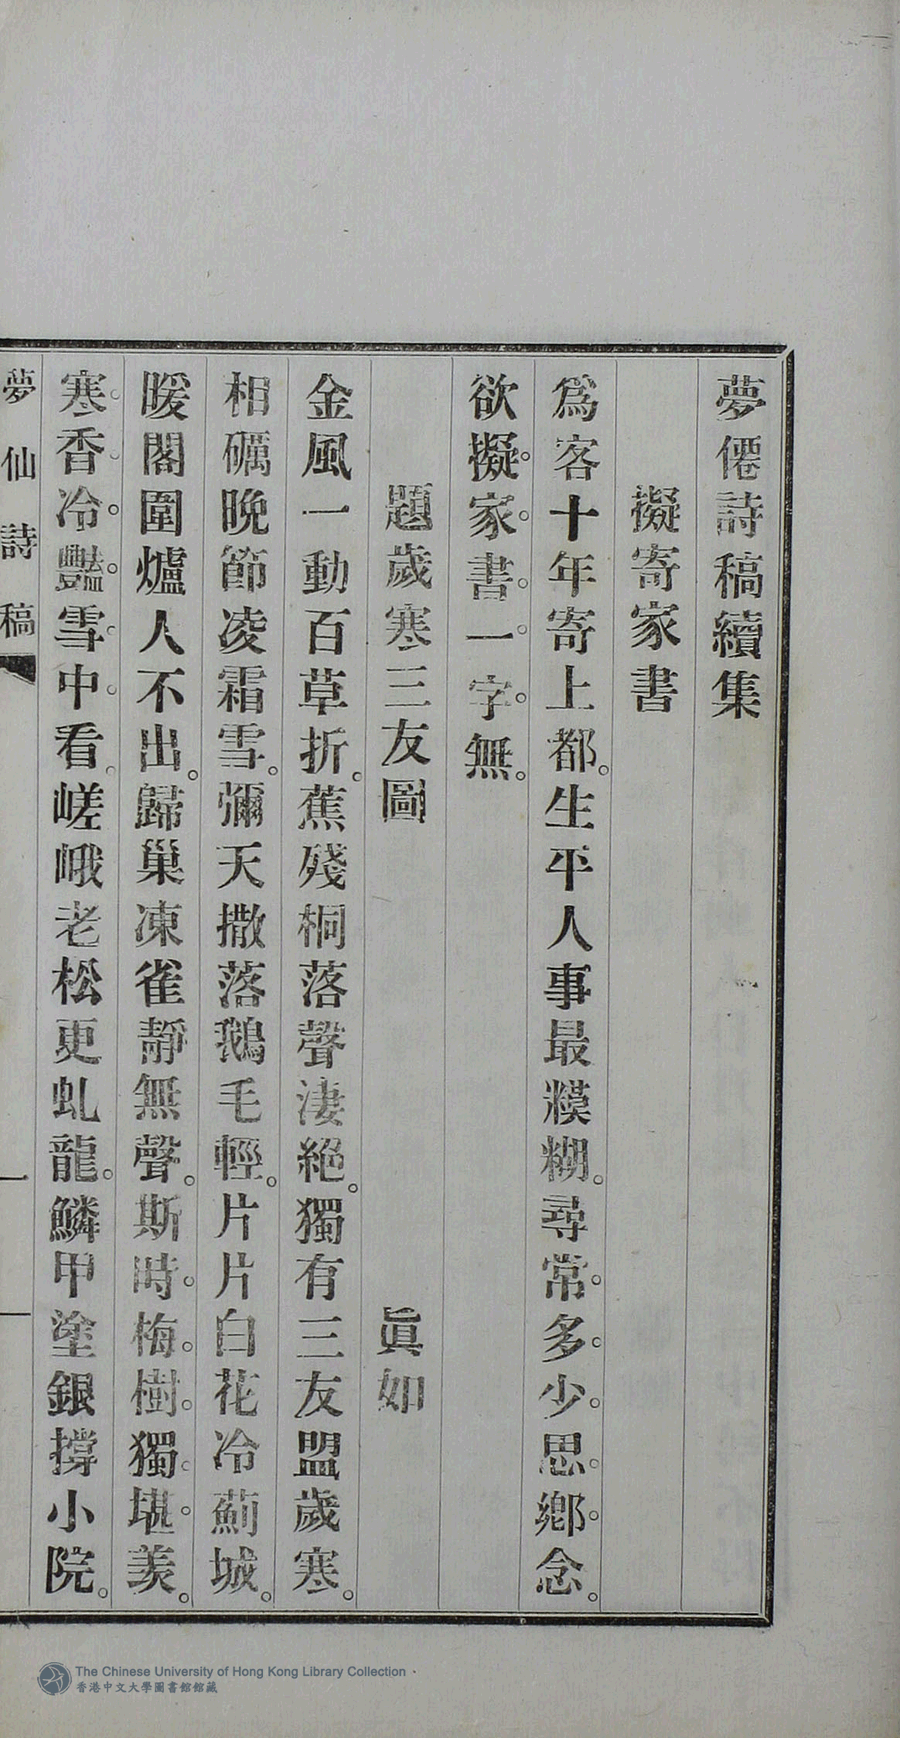 夢僊詩稿續集
擬寄家書
爲客十年寄上都。生平人事最糢糊。尋常多少思鄉念。
欲擬家書一字無。
題歲寒三友圖 眞如
金風一動百草折。蕉殘桐落聲淒絕。獨有三友盟歲寒。
相礪晚節凌霜雪。彌天撒落鵝毛輕。片片白花冷薊城。
暖閣圍爐人不出。歸巢凍雀靜無聲。斯時梅樹獨堪羨。
寒香冷豔雪中看。嵯峨老松更虬龍。鱗甲塗銀撐小院。
夢仙詩稿 一
The Chinese University of Hong Kong Library Collection
香港中文大學圖書館館藏